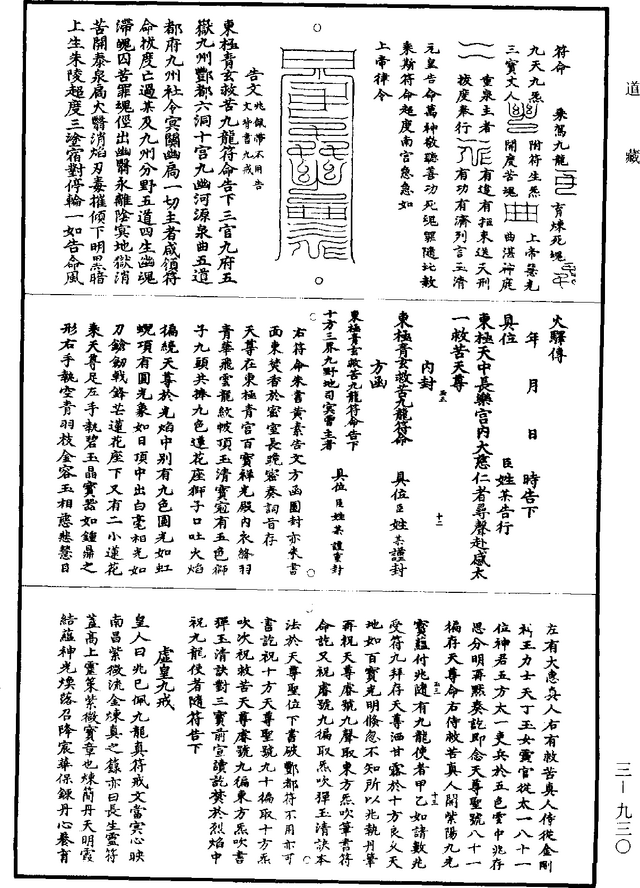 道藏
符命
乘駕九龍
九天九炁
附符生炁
育煉死魂
三寶丈人
開度苦魂
上帝慧光
曲湛神庭
重泉主者
有違有拒束送天刑
拔度奉行
有功有濟列言玉清
元皇告命萬神敬聽善功死魂罪隨此教
乘斯符命超度南宮急急如
上帝律令
告文
東極青玄救苦九龍符命告下三官九府五
嶽九州酆都六洞十宮九幽河源泉曲五道
都府九州社令冥關幽局一切主者咸須符
命拔度亡過某及九州分野五道四生幽魂
滯魄囚苦罪魂徑出幽翳永離陰冥地獄消
苦開泰泉扃大翳消焰刃毒摧傾下明黑暗
上生朱陵超度三塗宿對停輪一如告命風
火驛傳
年 月 日 時告下
具位 臣姓某告行
東極天中長樂宮內大慈仁者尋聲赴感太
一救苦天尊
內封
東極青玄救苦九龍符命 具位臣姓某謹封
方函
東極青玄救苦九龍符命告下
十方三界九野地司冥曹主者 具位臣姓某謹重封
右符命朱書黃素告文方函圓封亦朱書
面東焚香於密室長跪密奏詞旨存
天尊在東極青宮百寶祥光殿內衣絳羽
青華飛雲龍紋帔頂玉清寶冠有五色獅
子九頭共捧九色蓮花座獅子口吐火焰
徧繞天尊於光焰中別有九色圓光如虹
蜺項有圓光象如日頂中出白毫相光如
刀鎗劒戟鋒芒蓮花座下又有二小蓮花
乘天尊足左手執碧玉晶寶器如鍾鼎之
形右手執空青羽枝金容玉相慈悲慧目
左有大惠真人右有救苦真人侍從金剛
神王力士天丁玉女靈官從太一八十一
位神君五方太一吏兵於五色雲中兆存
思分明再默奏訖即念天尊聖號八十一
徧存天尊命右侍救苦真人開紫陽九光
寶蘊付兆隨有九龍使者甲乙如諸數兆
受符九拜存天尊洒甘露於十方良久天
地如百寶光明倏忽不知所以兆執丹筆
再祝天尊慶號九聲取東方炁吹筆書符
命訖又祝慶號九徧取炁吹彈玉清訣本
法於天尊聖位下書破酆都符不用亦可
書訖祝十方天尊聖號九十徧取十方炁
吹次祝救苦天尊慶號九徧東方炁吹書
彈玉清訣對三寶前宣讀訖焚於烈焰中
祝九龍使者隨符告下
虛皇九戒
皇人曰兆已佩九龍真符戒文當冥心映
南昌紫微流金煉真之籙亦曰長生靈符
蓋高上靈策紫微寶章也煉簡丹天明霞
結蘊神光煥落召降宸華保錬丹心養育
三一九三〇